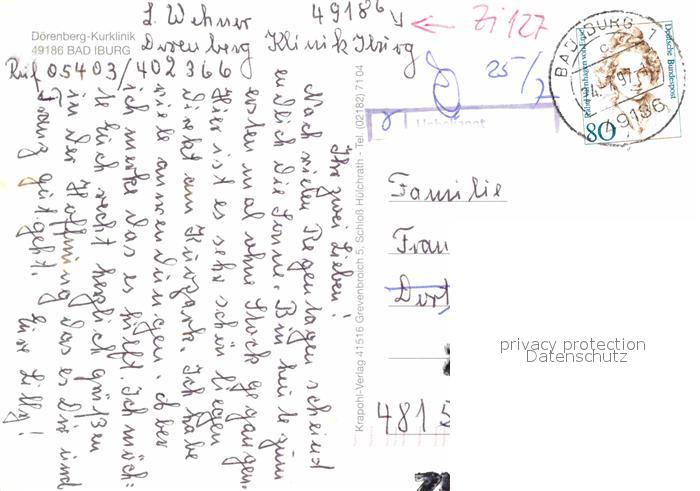 Dörenberg-Kurklinik
49186 BAD IBURG
L. Wehner 49186
Dörenberg Klinik Iburg
Ruf 05403/402366
Zi 127
25/7
Ihr zwei Lieben!
Nach vielen Regentagen scheint
endlich die Sonne. Bin heute zum
ersten mal ohne Stock gegangen.
Hier ist es sehr schön liegen
direkt am Kurpark. Ich habe
viele anwendungen. aber
ich merke das es hilft. Ich möch=
te Euch recht herzlich grüßen
in der Hoffnung das es Dir und
Franz gut geht.
Eure Lilly!
Krapohl-Verlag 41516 Grevenbroich 5, Schloß Hülchrath - Tel. (02182) 71 04
Deutsche Bundespost
80
BAD IBURG 1
49186
Familie
Frau
Dort
4815
privacy protection
Datenschutz